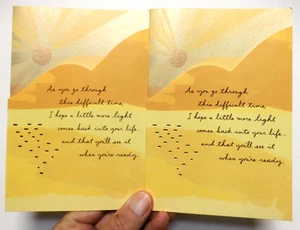 As you go through
this difficult time,
I hope a little more light
comes back into your life...
and that you'll see it
when you're ready.
As you go through
this difficult time,
I hope a little more light
comes back into your life...
and that you'll see it
when you're ready.